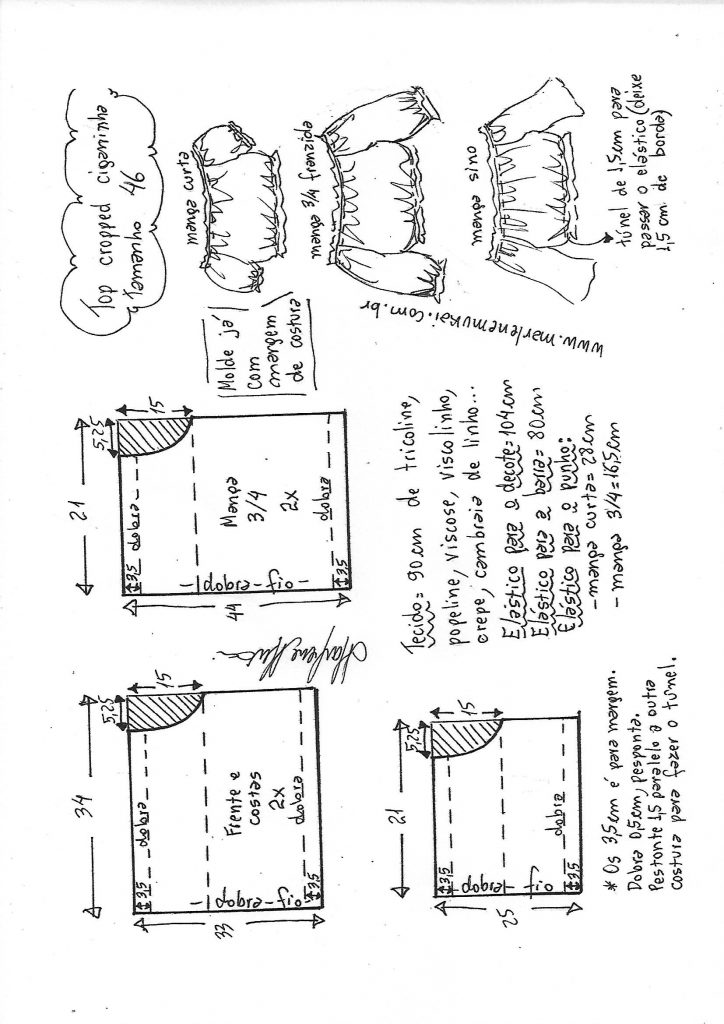 Top cropped ciganinha
Tamanho 46
manga curta
manga 3/4 franzida
manga sino
túnel de 1,5cm para
passar o elástico (deixe
1,5 cm de borda)
www.marlenemukai.com.br
Molde já
com
margem
de costura
34
5,25
15
dobra
Frente e
costas
2x
dobra
3,5
3,5
dobra - fio
33
21
5,25
15
dobra
Manga
3/4
2x
dobra
3,5
3,5
dobra - fio
44
21
5,25
15
dobra
3,5
3,5
dobra - fio
25
Tecido = 90cm de tricoline,
popeline, viscose, viscolinho,
crepe, cambraia de linho...
Elástico para o decote = 104cm
Elástico para a barra = 80cm
Elástico para o punho:
- manga curta = 28cm
- manga 3/4 = 16,5cm
* Os 3,5cm é para margem.
Dobra 0,5cm, pesponta.
Pestonte 1,5 paralelo a outra
costura para fazer o túnel.